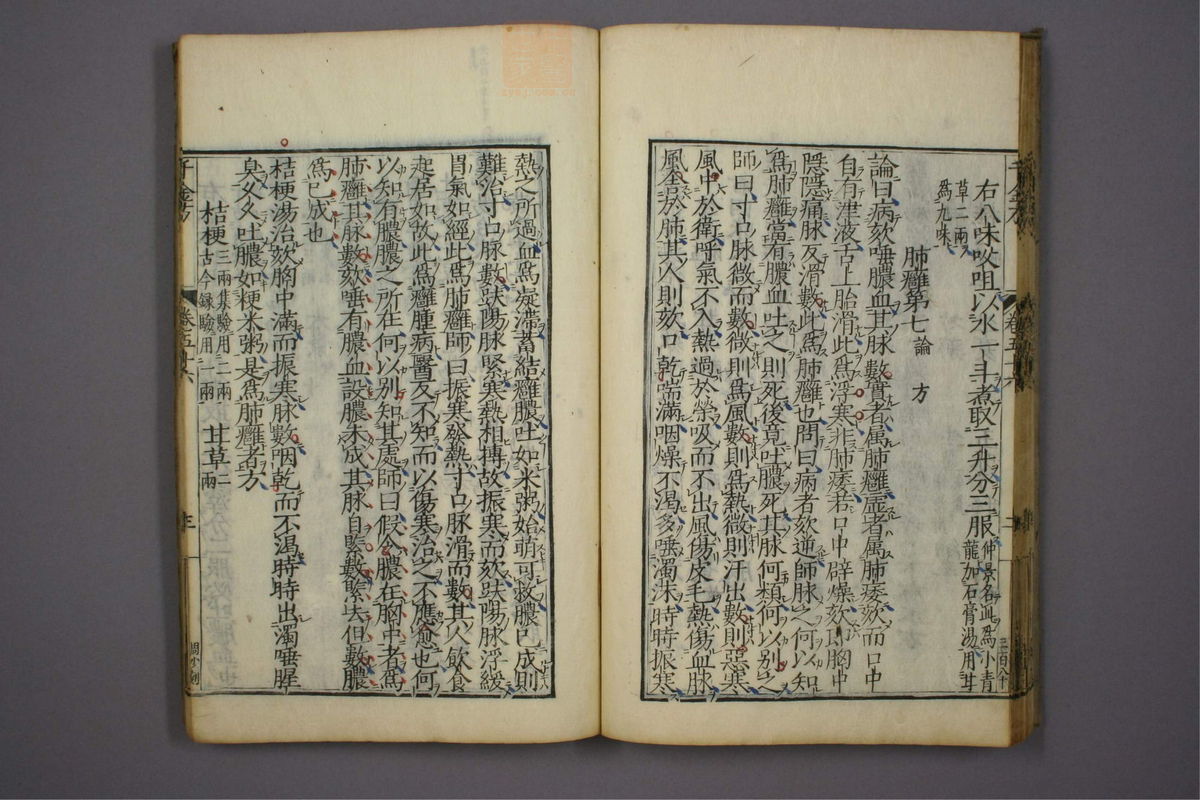 右八味㕮咀以水一斗煮取三升分三服仲景名此爲小青龍加石膏湯用甘
草二兩爲九味
肺癰第七論 方
論曰病欬唾膿血其脉數實者屬肺癰虛者屬肺痿欬而口中
自有津液舌上胎滑此爲浮寒非肺痿若口中辟燥欬卽胸中
隱隱痛脉反滑數此爲肺癰也問曰病者欬逆師脉之何以知
爲肺癰當有膿血吐之則死後竟吐膿死其脉何類何以别之
師曰寸口脉微而數微則爲風數則爲熱微則汗出數則惡寒
風中於衛呼氣不入熱過於榮吸而不出風傷皮毛熱傷血脉
風舍於肺其人則欬口乾喘滿咽燥不渴多唾濁沫時時振寒
熱之所過血爲凝滯蓄結癰膿吐如米粥始萌可救膿已成則
難治寸口脉數趺陽脉緊寒熱相搏故振寒而欬趺陽脉浮緩
胃氣如經此爲肺癰師曰振寒發熱寸口脉滑而數其人飲食
起居如故此爲癰腫病醫反不知而以傷寒治之不應愈也何
以知有膿膿之所在何以别知其處師曰假令膿在胸中者爲
肺癰其脉數欬唾有膿血設膿未成其脉自緊數緊去但數膿
爲已成也
桔梗湯治欬胸中滿而振寒脉數咽乾而不渴時時出濁唾腥
臭久久吐膿如粳米粥是爲肺癰者方
桔梗三兩集驗用二兩古今録驗用一兩 甘草二兩